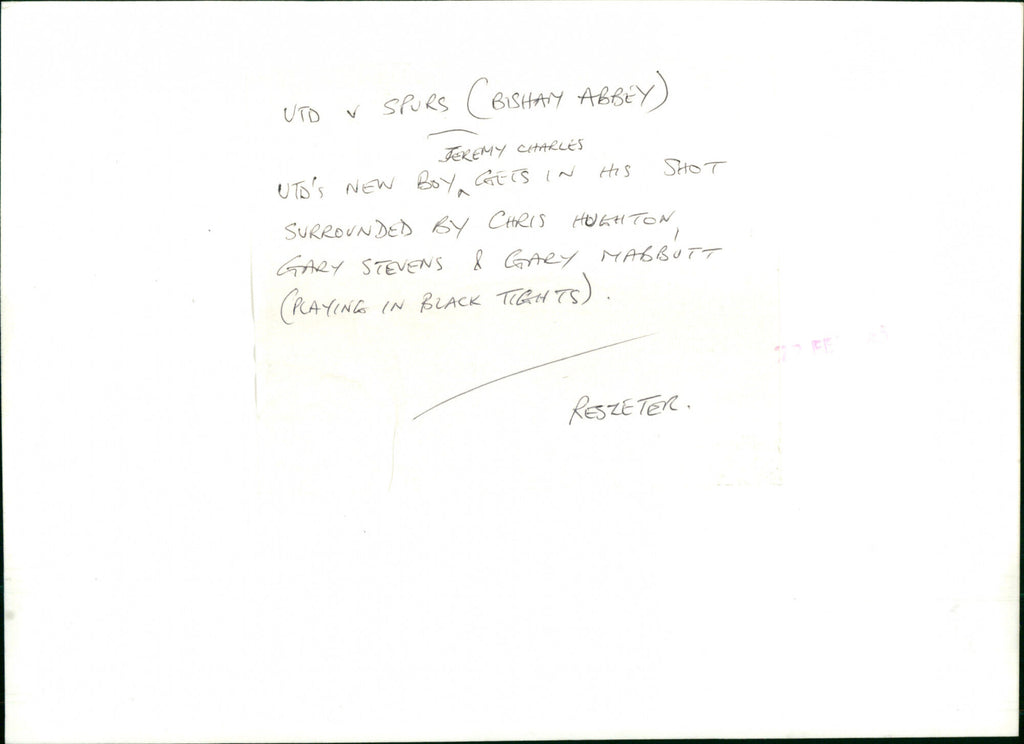 UTD v SPURS (BISHAM ABBEY)
JEREMY CHARLES
UTD'S NEW BOY ^ GETS IN HIS SHOT
SURROUNDED BY CHRIS HUGHTON,
GARY STEVENS & GARY MABBUTT
(PLAYING IN BLACK TIGHTS).
RESZETER.